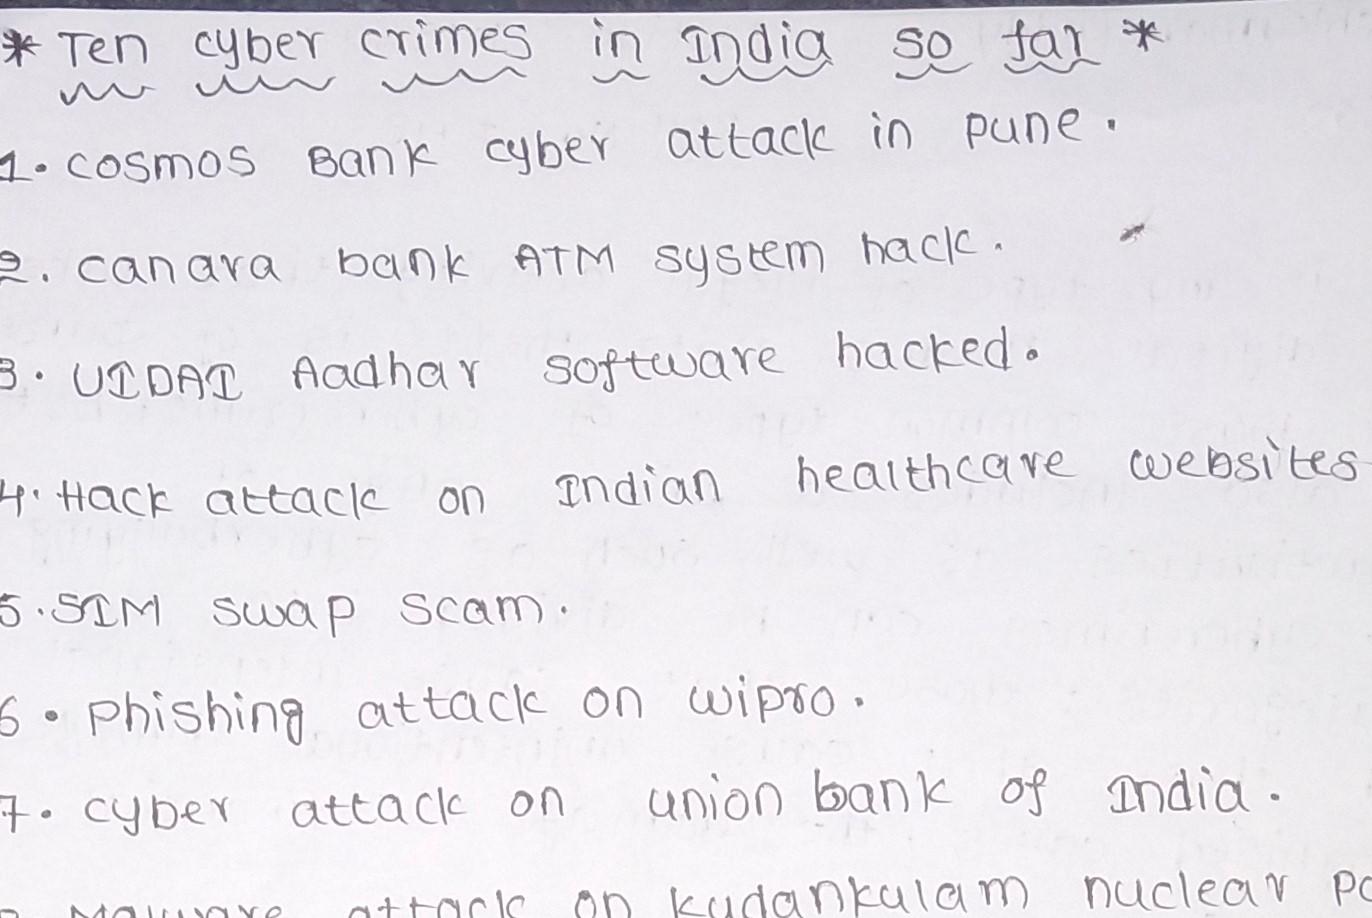 * Ten cyber crimes in India so far *
1. cosmos Bank cyber attack in pune.
2. canara bank ATM system hack.
3. UIDAI Aadhar software hacked.
4. Hack attack on Indian healthcare websites
5. SIM swap scam.
6. phishing attack on wipro.
7. cyber attack on union bank of India.
Malware attack on kudankulam nuclear